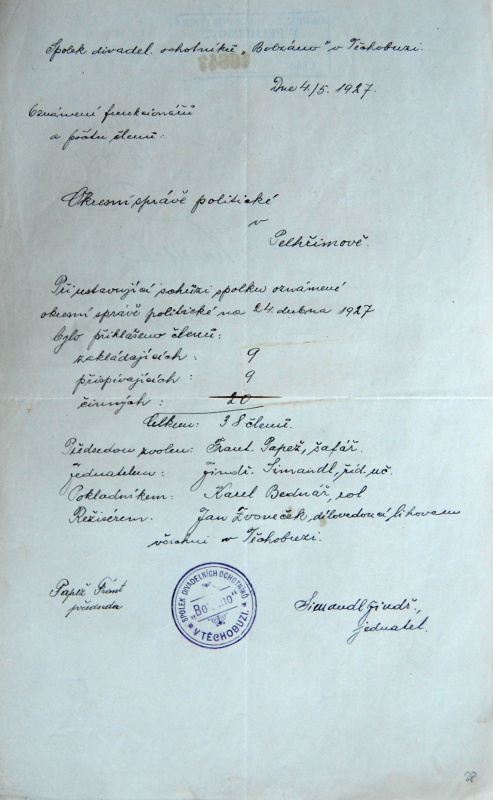 Spolek divadel. ochotníků „Bolzáno" v Těchobuzi.
Dne 4/5. 1927.
Oznámení funkcionářů
a počtu členů:
Okresní správě politické
v
Pelhřimově.
Při ustavující schůzi spolku oznámené
okresní správě politické na 24. dubna 1927
bylo přihlášeno členů:
zakládajících : 9
přispívajících : 9
činných : 20
Celkem: 38 členů.
Předsedou zvolen: Frant. Papež, šafář.
Jednatelem: Jindř. Simandl, říd. uč.
Pokladníkem: Karel Bednář, rol
Režisérem. Jan Zvoneček, dílovedoucí lihovaru
všichni v Těchobuzi.
Papež Fránt
předseda
SPOLEK DIVADELNÍCH OCHOTNÍKŮ
V TĚCHOBUZI.
Simandl Jindř.,
jednatel.
28